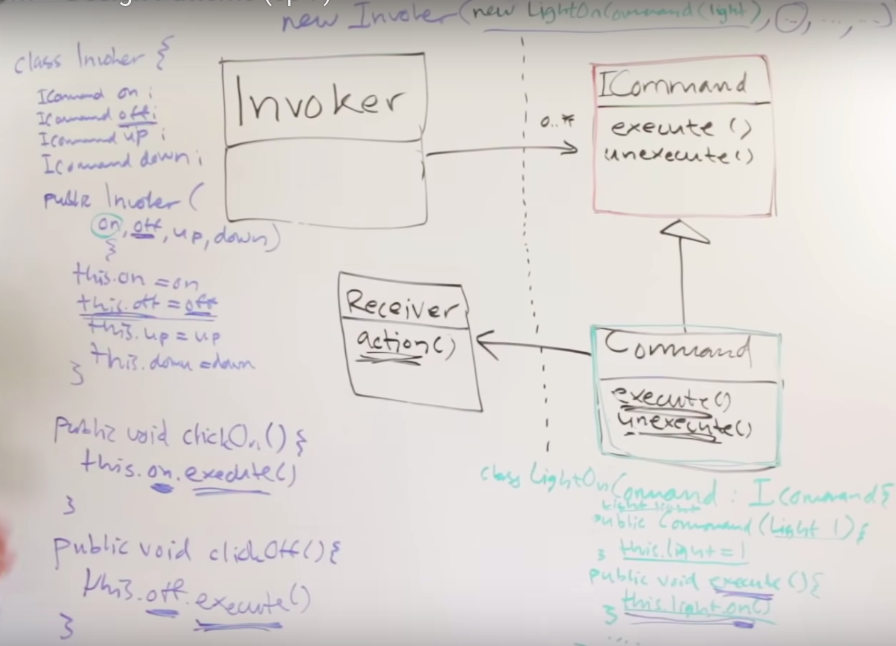 new Invoker(new LightOnCommand(light), (...), ..., ...)
class Invoker {
ICommand on;
ICommand off;
ICommand up;
ICommand down;
public Invoker(
on, off, up, down)
{
this.on = on
this.off = off
this.up = up
this.down = down
}
public void clickOn() {
this.on.execute()
}
public void clickOff() {
this.off.execute()
}
Invoker
0..*
ICommand
execute ()
unexecute()
Receiver
action()
Command
execute()
unexecute()
class LightOnCommand : ICommand {
public Command (Light l) {
} this.light = l
public void execute () {
} this.light.on()
....